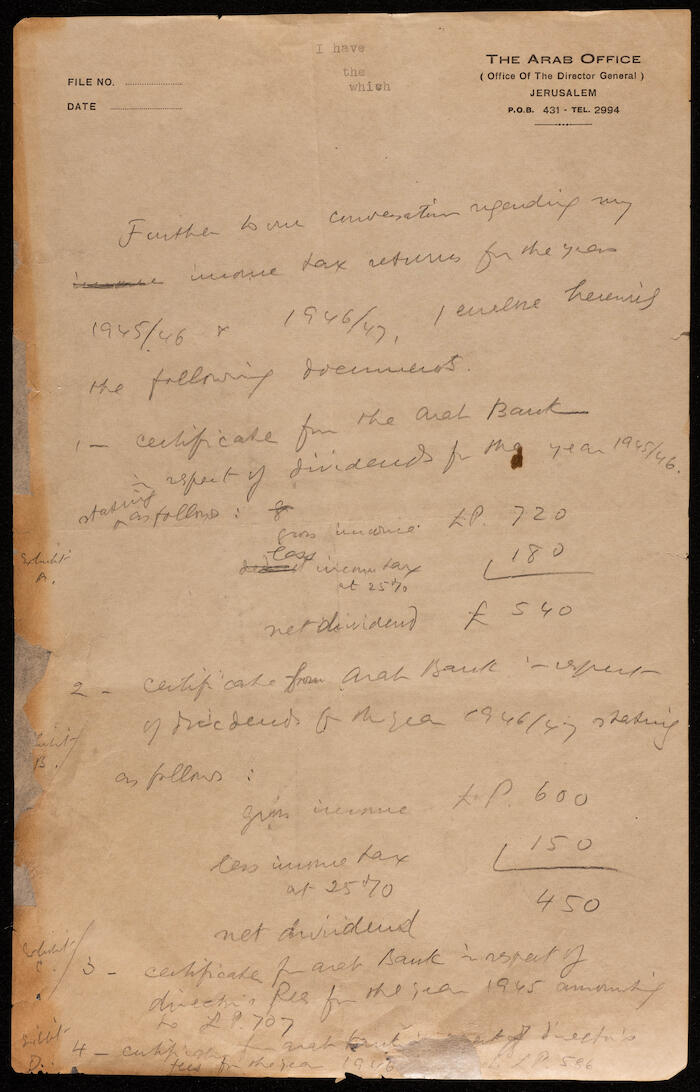 I have
the
which
FILE NO.
DATE
THE ARAB OFFICE
( Office Of The Director General )
JERUSALEM
P.O.B. 431 - TEL. 2994
Further to our conversation regarding my
income income tax returns for the years
1945/46 & 1946/47, I enclose herewith
the following documents.
1 - certificate from the Arab Bank
in respect of dividends for the year 1945/46.
stating as follows :
gross income £P. 720
less income tax 180
at 25%
net dividend £ 540
Exhibit
A.
2 - certificate from Arab Bank in respect
of dividends for the year 1946/47 stating
Exhibit
B.
as follows :
gross income £P. 600
less income tax 150
at 25%
450
net dividend
Exhibit
C.
3 - certificate from Arab Bank in respect of
director's fees for the year 1945 amounting
to £P. 707
Exhibit
D.
4 - certificate from Arab Bank in respect of director's
fees for the year 1946 £P. 586